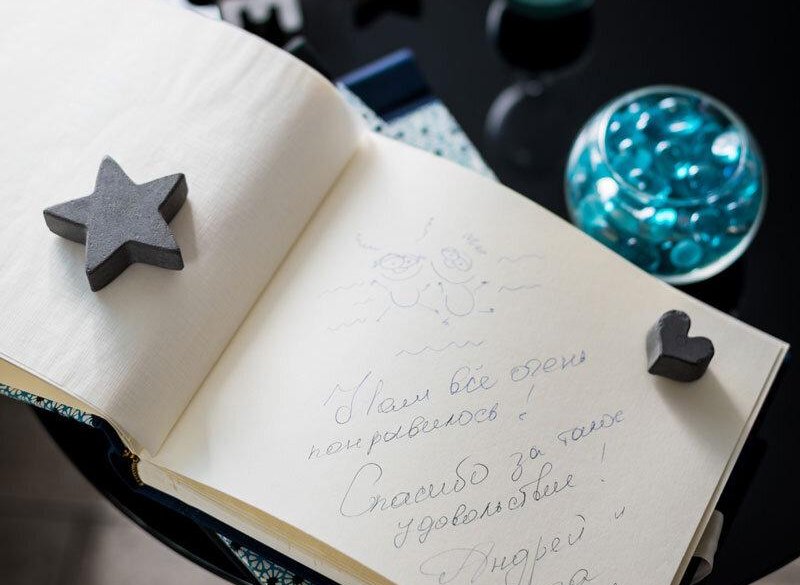 Нам всё очень
понравилось!
Спасибо за такое
удовольствие!
Андрей и